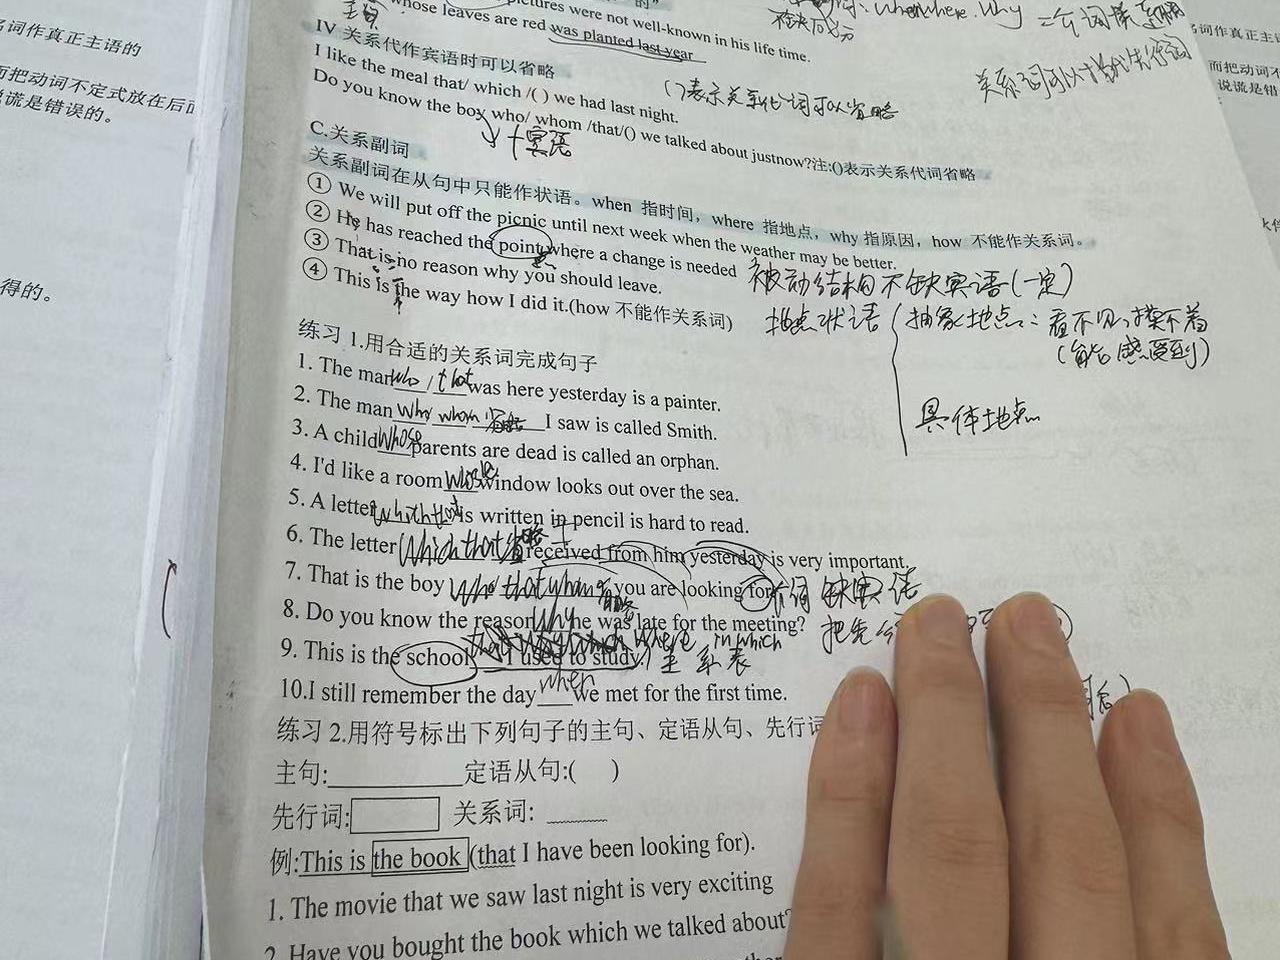 名词作真正主语的
而把动词不定式放在后面
说谎是错误的。
得的。
主句
的"
pictures were not well-known in his life time.
whose leaves are red was planted last year
IV 关系代作宾语时可以省略
I like the meal that/ which /( ) we had last night.
()表示关系代词可以省略
Do you know the boy who/ whom /that/() we talked about justnow?注:()表示关系代词省略
宾语
C.关系副词
关系副词在从句中只能作状语。when 指时间，where 指地点，why 指原因，how 不能作关系词。
① We will put off the picnic until next week when the weather may be better.
② He has reached the point where a change is needed
被动结构不缺宾语(一定)
③ That is no reason why you should leave.
④ This is the way how I did it.(how 不能作关系词)
地点状语
抽象地点: 看不见,摸不着
(能感受到)
具体地点
练习 1.用合适的关系词完成句子
1. The man who / that was here yesterday is a painter.
2. The man who whom 省略 I saw is called Smith.
3. A child whose parents are dead is called an orphan.
4. I'd like a room whose window looks out over the sea.
5. A letter which that is written in pencil is hard to read.
6. The letter which that 省略 I received from him yesterday is very important.
7. That is the boy who that whom 省略 you are looking for.
介词缺宾语
8. Do you know the reason why he was late for the meeting?
9. This is the school where in which I used to study.
10.I still remember the day when we met for the first time.
练习 2.用符号标出下列句子的主句、定语从句、先行词
主句:____________定语从句:( )
先行词: 关系词:
例:This is the book (that I have been looking for).
1. The movie that we saw last night is very exciting
2. Have you bought the book which we talked about?
名词作真正主语
而把动词不
说谎是错